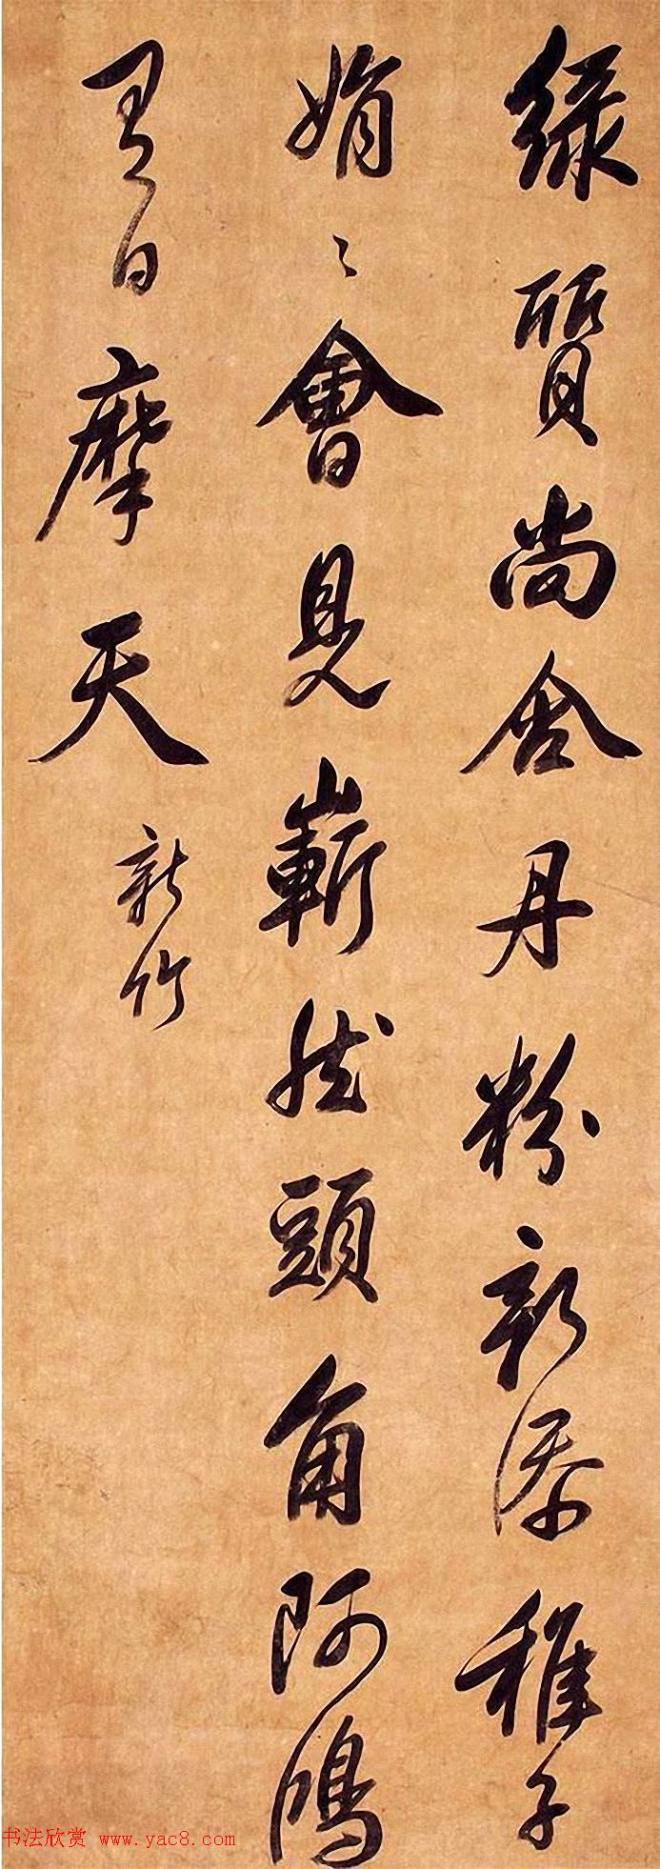 綠質尚含丹粉新添稚子
娟〻會見嶄然頭角阿鴻
異日摩天
新竹
书法欣赏 www.yac8.com